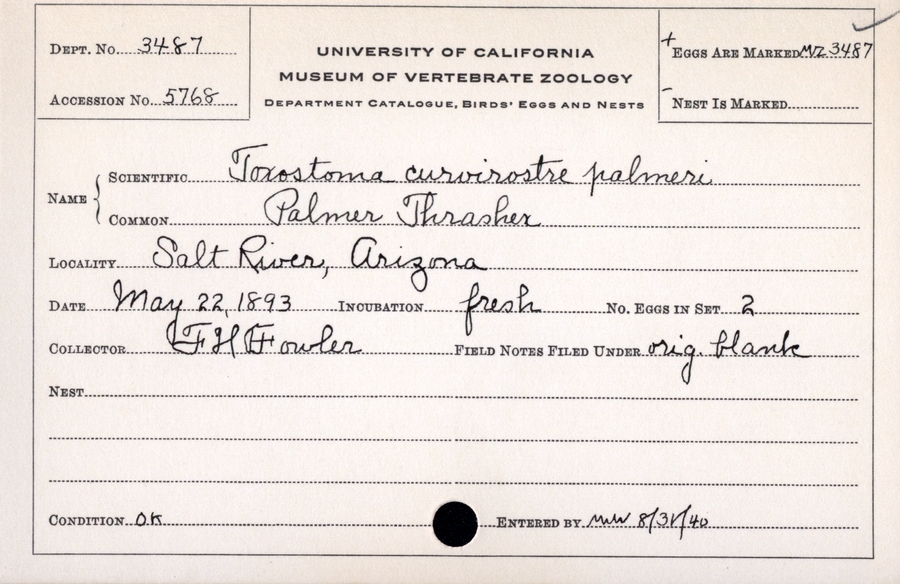 Dept. No. 3487
Accession No. 5768
UNIVERSITY OF CALIFORNIA
MUSEUM OF VERTEBRATE ZOOLOGY
Department Catalogue, Birds' Eggs and Nests
+ Eggs Are Marked MVZ 3487
- Nest Is Marked
Name
Scientific Toxostoma curvirostre palmeri
Common Palmer Thrasher
Locality Salt River, Arizona
Date May 22, 1893 Incubation fresh No. Eggs in Set 2
Collector F H Fowler Field Notes Filed Under orig. blank
Nest
Condition OK Entered by 8/31/40